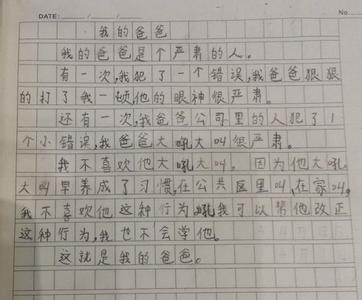 DATE: / / No.
我的爸爸
我的爸爸是个严肃的人。
有一次,我犯了一个错误,我爸爸狠狠
的打了我一顿,他的眼神很严肃。
还有一次,我爸爸公司里的人犯了1
个小错误,我爸爸大吼大叫很严肃。
我不喜欢他大吼大叫。因为他大吼
大叫早养成了习惯,在公共区里叫,在家叫。
我不喜欢他这种行为,吼我可以帮他改正
这种行为,我也不会学他。
这就是我的爸爸。